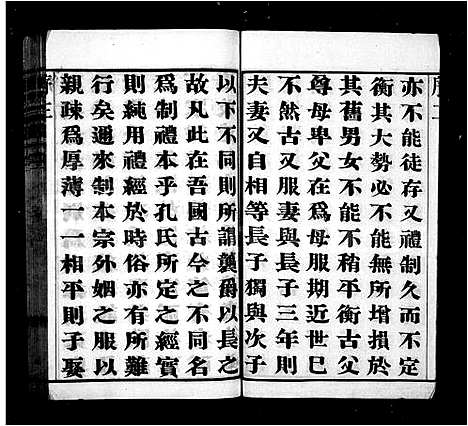 亦不能徒存又禮制久而不定
衡其大勢必不能無所增損於
其舊男女不稍平衡古父
尊母卑父在為母服期近世巳
不然古又服妻與長子三年則
夫妻又自相等長子獨與次子
以下不同則所謂襲爵以長之
故凡此在吾國古今之不同名
為制禮本乎孔氏所定之經實
則純用禮經於時俗亦有所難
行矣邇來制本宗外姻之服以
親疎為厚薄一一相平則子娶
序三